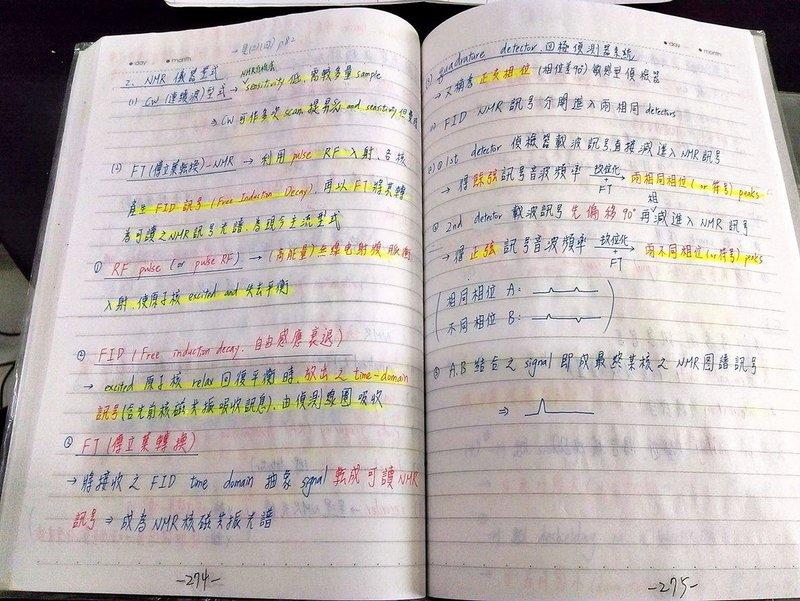 •day •month
2. NMR 儀器型式
(1) CW (連續波) 型式 → sensitivity 低, 需較多量 sample
⇒ CW 可作多次 scan 提昇 and sensitivity
(2) FT (傅立葉轉換)-NMR → 利用 pulse RF 入射, 各核
產生 FID 訊號 (Free Induction Decay) 再以 FT 將其轉
為可讀之 NMR 訊號光譜, 為現今主流型式
① RF pulse (or pulse RF) → (高能量) 無線電射頻脈衝
入射, 使原子核 excited and 失去平衡
② FID (Free induction decay, 自由感應衰退)
→ excited 原子核 relax 回復平衡時, 放出之 time-domain
訊號 (含有前核磁共振吸收訊息), 由偵測線圈吸收
③ FT (傅立葉轉換)
→ 將接收之 FID time domain 抽象 signal 轉成可讀 NMR
訊號 ⇒ 成為 NMR 核磁共振光譜
-274-
•day •month
quadrature detector, 偵測器系統
→ 又稱為正交相位 (相位差90°) 敏感型偵檢器
FID NMR 訊號分開進入兩相同 detectors
1st detector 偵檢器載波訊號直接減進入 NMR 訊號
→ 得餘弦訊號音波頻率 數位化 + FT → 兩相同相位 (or 符號) peaks
② 2nd detector 載波訊號先偏移90° 再減進入 NMR 訊號
→ 得正弦訊號音波頻率 數位化 + FT → 兩不同相位 (or 符號) peaks
相同相位 A:
不同相位 B:
A.B 結合之 signal 即成最終某核之 NMR 圖譜訊號
⇒
-275-